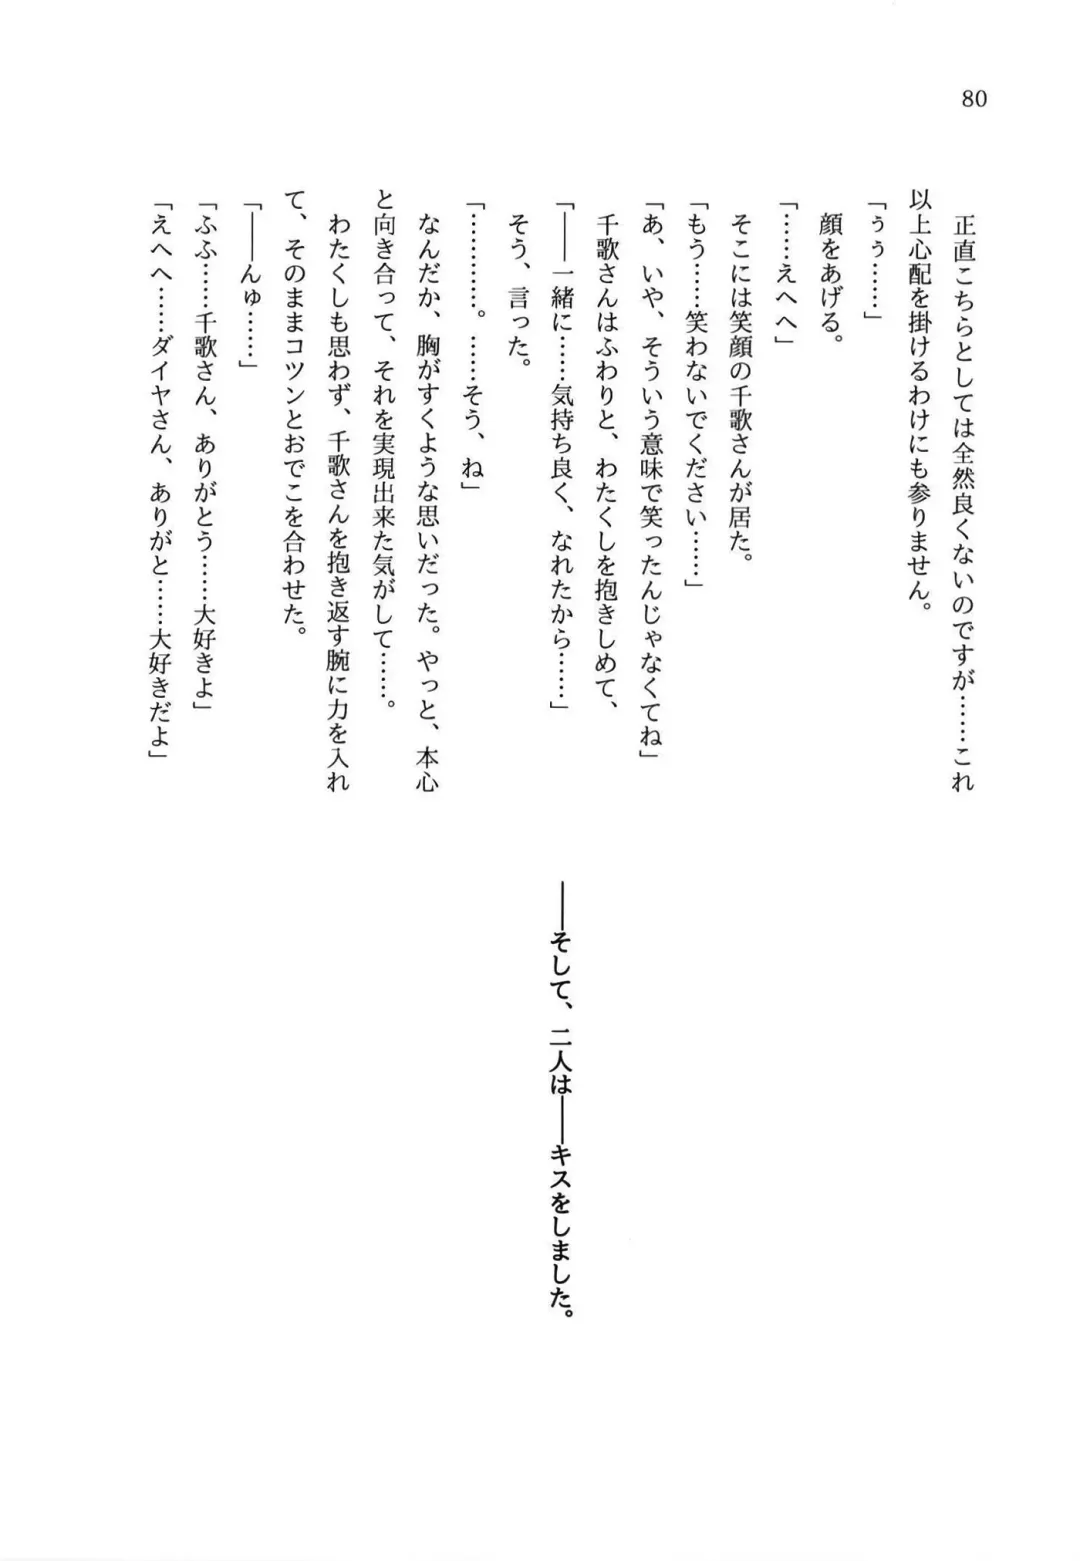 80
正直こちらとしては全然良くないのですが……これ
以上心配を掛けるわけにも参りません。
「ぅぅ……」
顔をあげる。
「……えへへ」
そこには笑顔の千歌さんが居た。
「もう……笑わないでください……」
「あ、いや、そういう意味で笑ったんじゃなくてね」
千歌さんはふわりと、わたくしを抱きしめて、
「――一緒に……気持ち良く、なれたから……」
そう、言った。
「…………。……そう、ね」
なんだか、胸がすくような思いだった。やっと、本心
と向き合って、それを実現出来た気がして……。
わたくしも思わず、千歌さんを抱き返す腕に力を入れ
て、そのままコツンとおでこを合わせた。
「――んゅ……」
「ふふ……千歌さん、ありがとう……大好きよ」
「えへへ……ダイヤさん、ありがと……大好きだよ」
――そして、二人は――キスをしました。